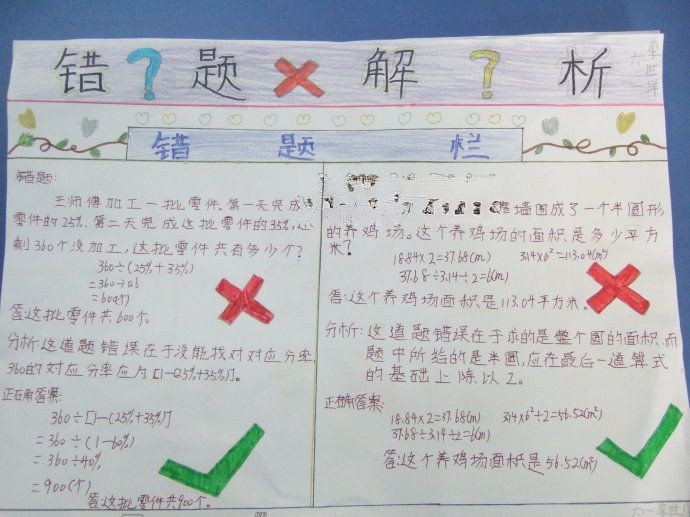 错?题×解?析
李世洋
六一
错题栏
错题:
王师傅加工一批零件,第一天完成
零件的25%,第二天完成这批零件的35%,还
剩360个没加工,这批零件共有多少个?
360÷(25%+35%)
=360÷0.6
=600(个)
答:这批零件共600个。
分析:这道题错误在于没能找对对应分率,
360的对应分率应为[1-(25%+35%)]。
正确答案:
360÷[1-(25%+35%)]
=360÷(1-60%)
=360÷40%
=900(个)
答:这批零件共900个。
靠墙围成了一个半圆形
的养鸡场。这个养鸡场的面积是多少平方
米?
18.84×2=37.68(m) 3.14×6²=113.04(m²)
37.68÷3.14÷2=6(m)
答:这个养鸡场面积是113.04平方米。
分析:这道题错误在于求的是整个圆的面积,而
题中所给的是半圆,应在最后一道算式
的基础上除以2。
正确答案:
18.84×2=37.68(m) 3.14×6²÷2=56.52(m²)
37.68÷3.14÷2=6(m)
答:这个养鸡场面积是56.52(m²)
六一李世洋